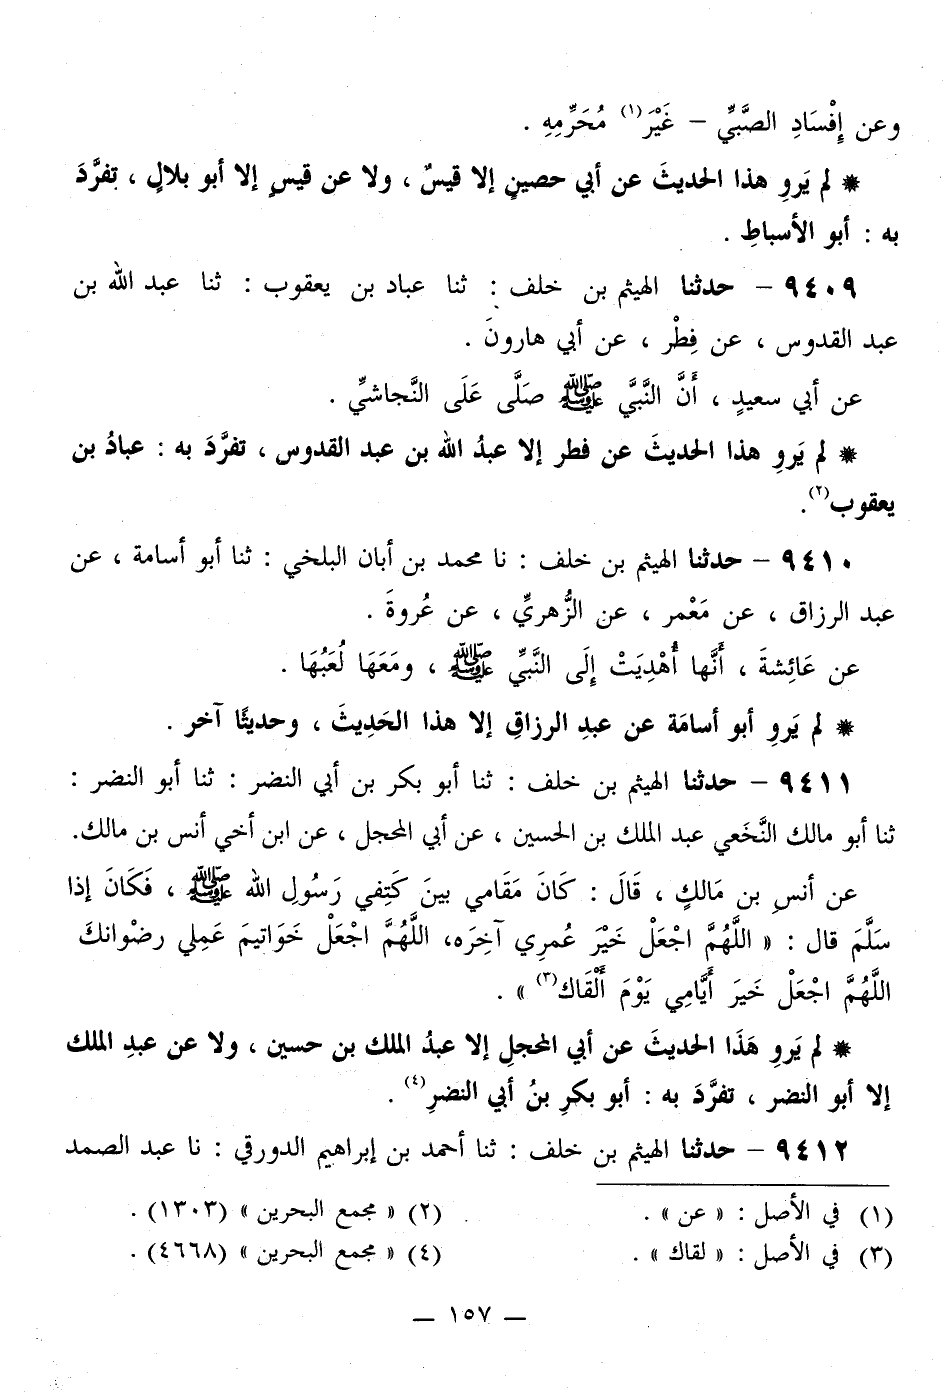 وعن إِفْسَادِ الصَّبِيِّ – غَيْرَ(١) مُحَرِّمِهِ .
* لم يَروِ هذا الحديثَ عن أبي حصينٍ إلا قيسٌ ، ولا عن قيسٍ إلا أبو بلالٍ ، تفرَّدَ
به : أبو الأسباطِ .
٩٤٠٩ – حدثنا الهيثم بن خلف : ثنا عباد بن يعقوب : ثنا عبد الله بن
عبد القدوس ، عن فِطْر ، عن أبي هارونَ .
عن أبي سعيدٍ ، أَنَّ النَّبيَّ ﷺ صَلَّى عَلَى النَّجاشيِّ .
* لم يَروِ هذا الحديثَ عن فطر إلا عبدُ الله بن عبد القدوس ، تفرَّدَ به : عبادُ بن
يعقوب(٢).
٩٤١٠ – حدثنا الهيثم بن خلف : نا محمد بن أبان البلخي : ثنا أبو أسامة ، عن
عبد الرزاق ، عن مَعْمر ، عن الزُّهريِّ ، عن عُروةَ .
عن عَائِشةَ ، أَنَّها أُهْدِيَتْ إِلَى النَّبيِّ ﷺ ، ومَعَهَا لُعَبُهَا .
* لم يَروِ أبو أسامَة عن عبدِ الرزاقِ إلا هذا الحَدِيثَ ، وحديثًا آخر .
٩٤١١ – حدثنا الهيثم بن خلف : ثنا أبو بكر بن أبي النضر : ثنا أبو النضر :
ثنا أبو مالك النَّخَعي عبد الملك بن الحسين ، عن أبي المحجل ، عن ابن أخي أنس بن مالك.
عن أنسِ بن مَالكٍ ، قَالَ : كَانَ مَقَامي بينَ كَتِفي رَسُولِ الله ﷺ ، فَكَانَ إذا
سَلَّمَ قال : « اللَّهُمَّ اجْعَلْ خَيْرَ عُمرِي آخِرَه، اللَّهُمَّ اجْعَلْ خَوَاتيمَ عَمِلي رضْوانكَ
اللَّهُمَّ اجْعَلْ خَيرَ أَيَّامِي يَوْمَ أَلْقَاك(٣) » .
* لم يَروِ هَذَا الحديثَ عن أبي المحجلِ إلا عبدُ الملك بن حسين ، ولا عن عبدِ الملك
إلا أبو النضر ، تفرَّدَ به : أبو بكرِ بنُ أبي النضرِ(٤) .
٩٤١٢ – حدثنا الهيثم بن خلف : ثنا أحمد بن إبراهيم الدورقي : نا عبد الصمد
(١) في الأصل : « عن » .
(٢) « مجمع البحرين » (١٣٠٣) .
(٣) في الأصل : « لقاك » .
(٤) « مجمع البحرين » (٤٦٦٨) .
— ١٥٧ —